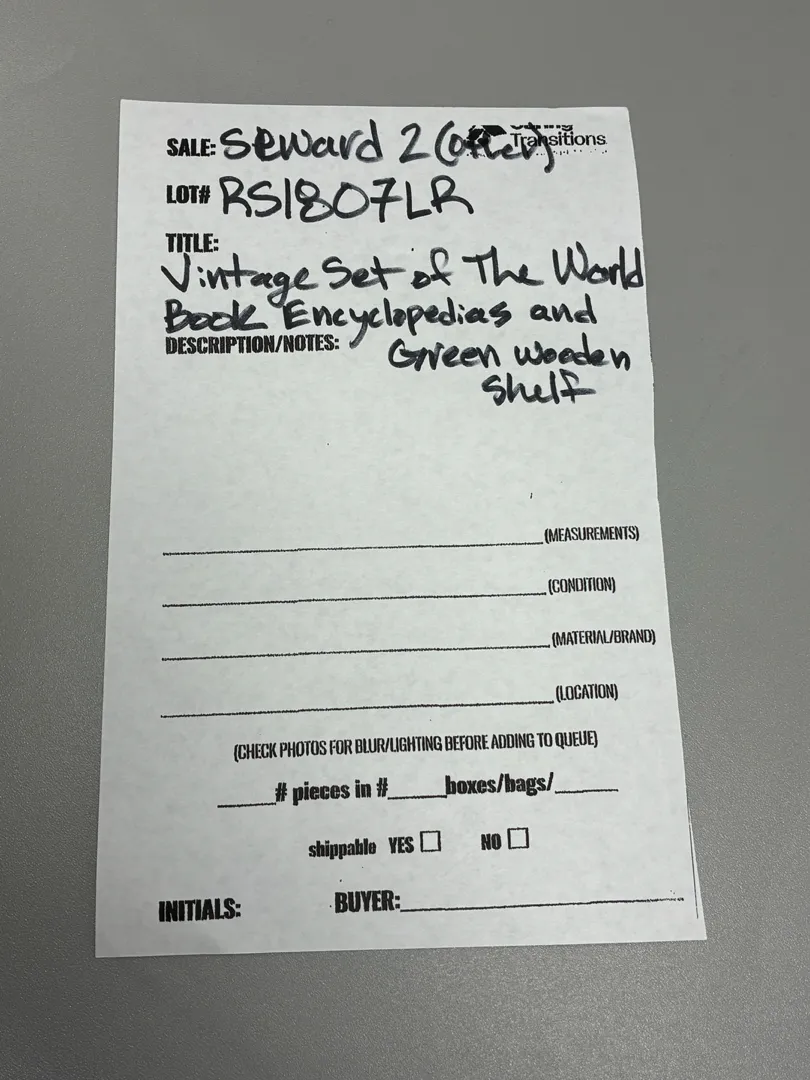 SALE: Seward 2 (offer) Transitions
LOT# RS1807LR
TITLE:
Vintage Set of The World
Book Encyclopedias and
DESCRIPTION/NOTES: Green wooden
Shelf
(MEASUREMENTS)
(CONDITION)
(MATERIAL/BRAND)
(LOCATION)
(CHECK PHOTOS FOR BLUR/LIGHTING BEFORE ADDING TO QUEUE)
_____# pieces in #_____boxes/bags/_____
shippable YES ☐ NO ☐
INITIALS: BUYER: